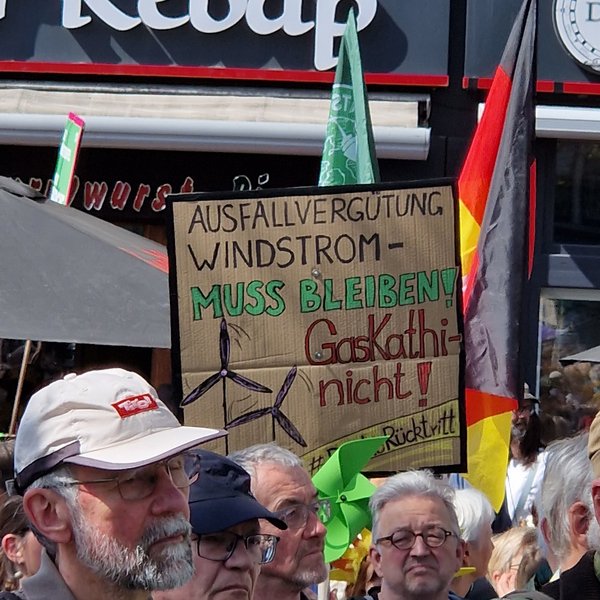 Kebap
AUSFALLVERGÜTUNG
WINDSTROM-
MUSS BLEIBEN!
GasKathi-
nicht!